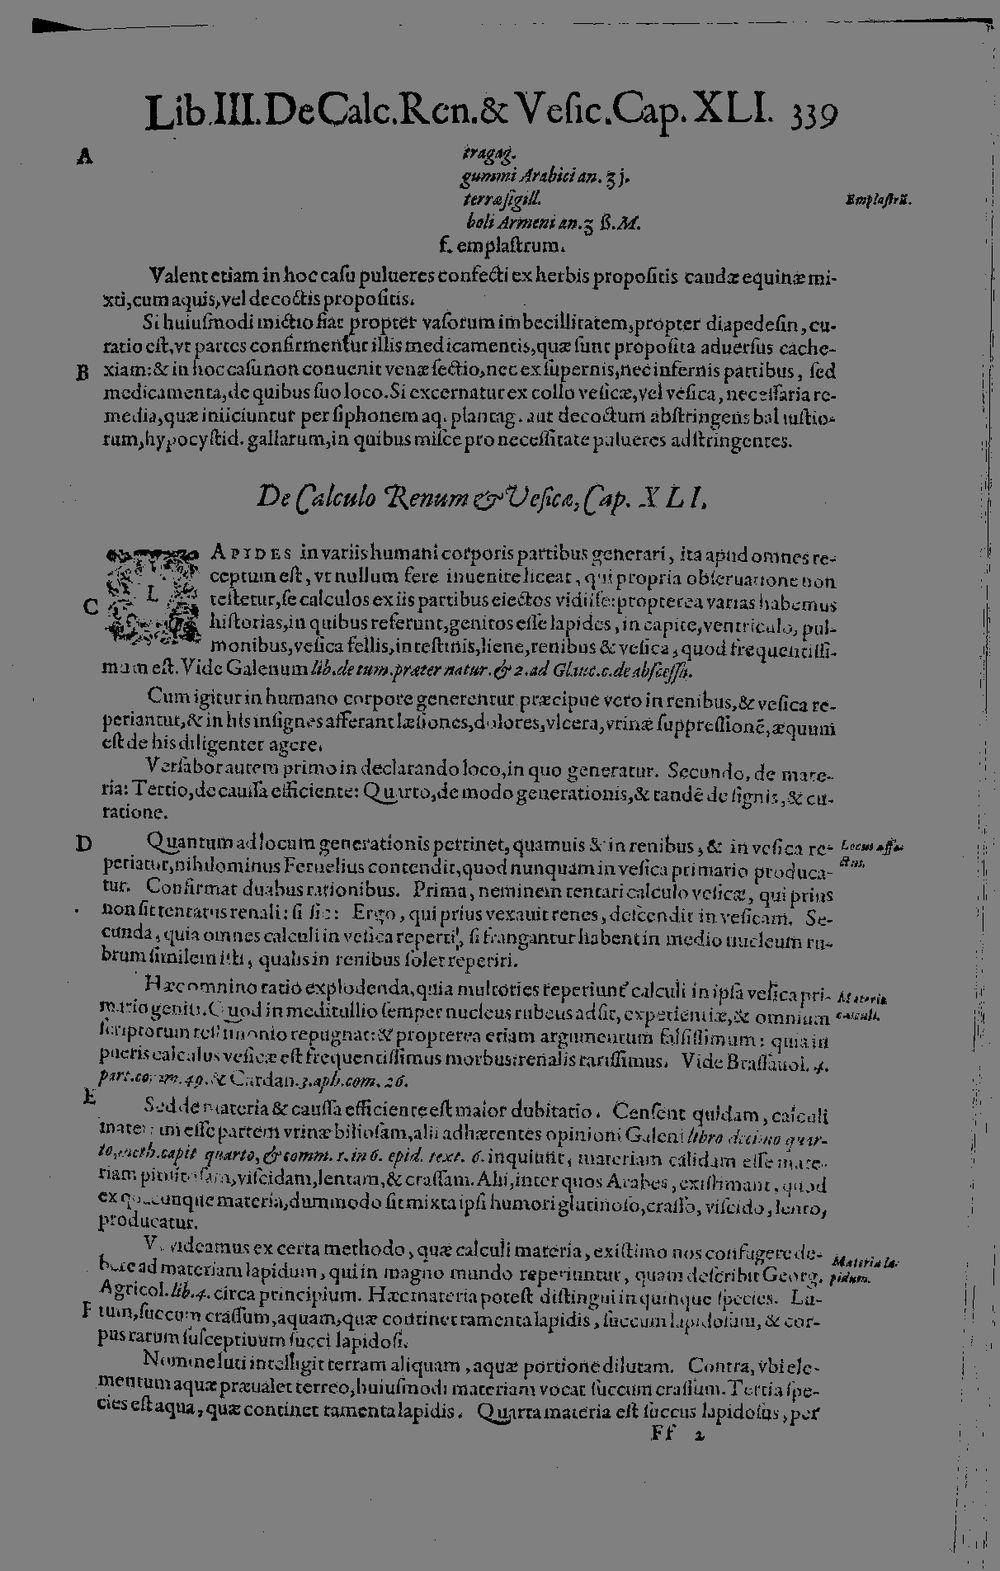 Lib.III.De Calc.Ren.& Vesic.Cap.XLI. 339
A
tragag.
gummi Arabici an. ʒ j.
terræ sigill.
boli Armeni an. ʒ ß. M.
f. emplastrum.
Emplastrū.
Valent etiam in hoc casu pulueres confecti ex herbis propositis caudæ equinæ mi-
xti, cum aquis, vel decoctis propositis.
Si huiusmodi mictio fiat propter vasorum imbecillitatem, propter diapedesin, cu-
ratio est, vt partes confirmentur illis medicamentis, quæ sunt proposita aduersus cache-
B
xiam: & in hoc casu non conuenit venæ sectio, nec ex supernis, nec infernis partibus, sed
medicamenta, de quibus suo loco. Si excernatur ex collo vesicæ, vel vesica, necessaria re-
media, quæ iniiciuntur per siphonem aq. plantag. aut decoctum abstringens balaustio-
rum, hypocystid. gallarum, in quibus misce pro necessitate pulueres adstringentes.
De Calculo Renum & Vesicæ, Cap. XLI.
C
LAPIDES in variis humani corporis partibus generari, ita apud omnes re-
ceptum est, vt nullum fere inuenire liceat, qui propria obseruatione non
testetur, se calculos ex iis partibus eiectos vidisse: propterea varias habemus
historias, in quibus referunt, genitos esse lapides, in capite, ventriculo, pul-
monibus, vesica fellis, intestinis, liene, renibus & vesica, quod frequentissi-
mum est. Vide Galenum lib. de tum. præter natur. & 2. ad Glauc. c. de abscessu.
Cum igitur in humano corpore generentur præcipue vero in renibus, & vesica re-
periantur, & in his insignes afferant læsiones, dolores, vlcera, vrinæ suppressionē, æquum
est de his diligenter agere.
Versabor autem primo in declarando loco, in quo generatur. Secundo, de mate-
ria: Tertio, de caussa efficiente: Quarto, de modo generationis, & tandē de signis, & cu-
ratione.
D
Quantum ad locum generationis pertinet, quamuis & in renibus, & in vesica re-
Locus affe-
ctus.
periatur, nihilominus Fernelius contendit, quod nunquam in vesica primario produca-
tur. Confirmat duabus rationibus. Prima, neminem tentari calculo vesicæ, qui prius
non sit tentatus renali: si sic: Ergo, qui prius vexauit renes, descendit in vesicam. Se-
cunda, quia omnes calculi in vesica reperti, si frangantur habent in medio nucleum ru-
brum similem illi, qualis in renibus solet reperiri.
Hæc omnino ratio explodenda, quia multoties reperiunt calculi in ipsa vesica pri-
Materia
calculi.
mario geniti. Quod in meditullio semper nucleus rubeus adsit, experientiæ, & omnium
scriptorum testimonio repugnat: & propterea etiam argumentum falsissimum: quia in
pueris calculus vesicæ est frequentissimus morbus: renalis rarissimus. Vide Brassauol. 4.
part. comm. 49. & Cardan. 3. aph. com. 26.
E
Sed de materia & caussa efficiente est maior dubitatio. Censent quidam, calculi
materiam esse partem vrinæ biliosam, alii adhærentes opinioni Galeni libro decimo quar-
to, meth. capit quarto, & comm. 1. in 6. epid. text. 6. inquiunt, materiam calidam esse mate-
riam pituitosam, viscidam, lentam, & crassam. Alii, inter quos Arabes, existimant, quod
ex quacunque materia, dummodo sit mixta ipsi humori glutinoso, crasso, viscido, lento,
producatur.
Vt videamus ex certa methodo, quæ calculi materia, existimo nos confugere de-
Materia la-
pidum.
bere ad materiam lapidum, qui in magno mundo reperiuntur, quam describit Georg.
Agricol. lib. 4. circa principium. Hæc materia potest distingui in quinque species. Lu-
F
tum, succum crassum, aquam, quæ continet ramenta lapidis, succum lapidosum, & cor-
pus rarum susceptiuum succi lapidosi.
Nomine luti intelligit terram aliquam, aquæ portione dilutam. Contra, vbi ele-
mentum aquæ præualet terreo, huiusmodi materiam vocat succum crassum. Tertia spe-
cies est aqua, quæ continet ramenta lapidis. Quarta materia est succus lapidosus, per
Ff 2